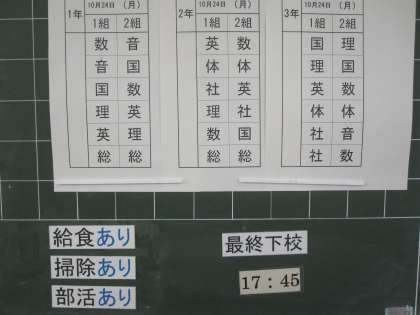 1年 10月24日 (月) 2年 10月24日 (月) 3年 10月24日 (月)
1組 2組 1組 2組 1組 2組
数 音 英 数 国 理
音 国 体 体 理 国
国 数 社 英 英 数
理 英 理 社 体 体
英 理 数 国 社 音
総 総 総 総 社 数
給食あり 最終下校
掃除あり 17:45
部活あり